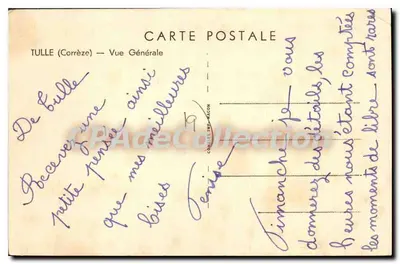 CARTE POSTALE
TULLE (Corrèze) — Vue Générale
De Tulle
Recevez une
petite pensée ainsi
que mes meilleures
bises
Denise
Dimanche je vous
donnerez des détails, les
heures nous étant comptées
les moments de libre sont rares
CPADeCollection